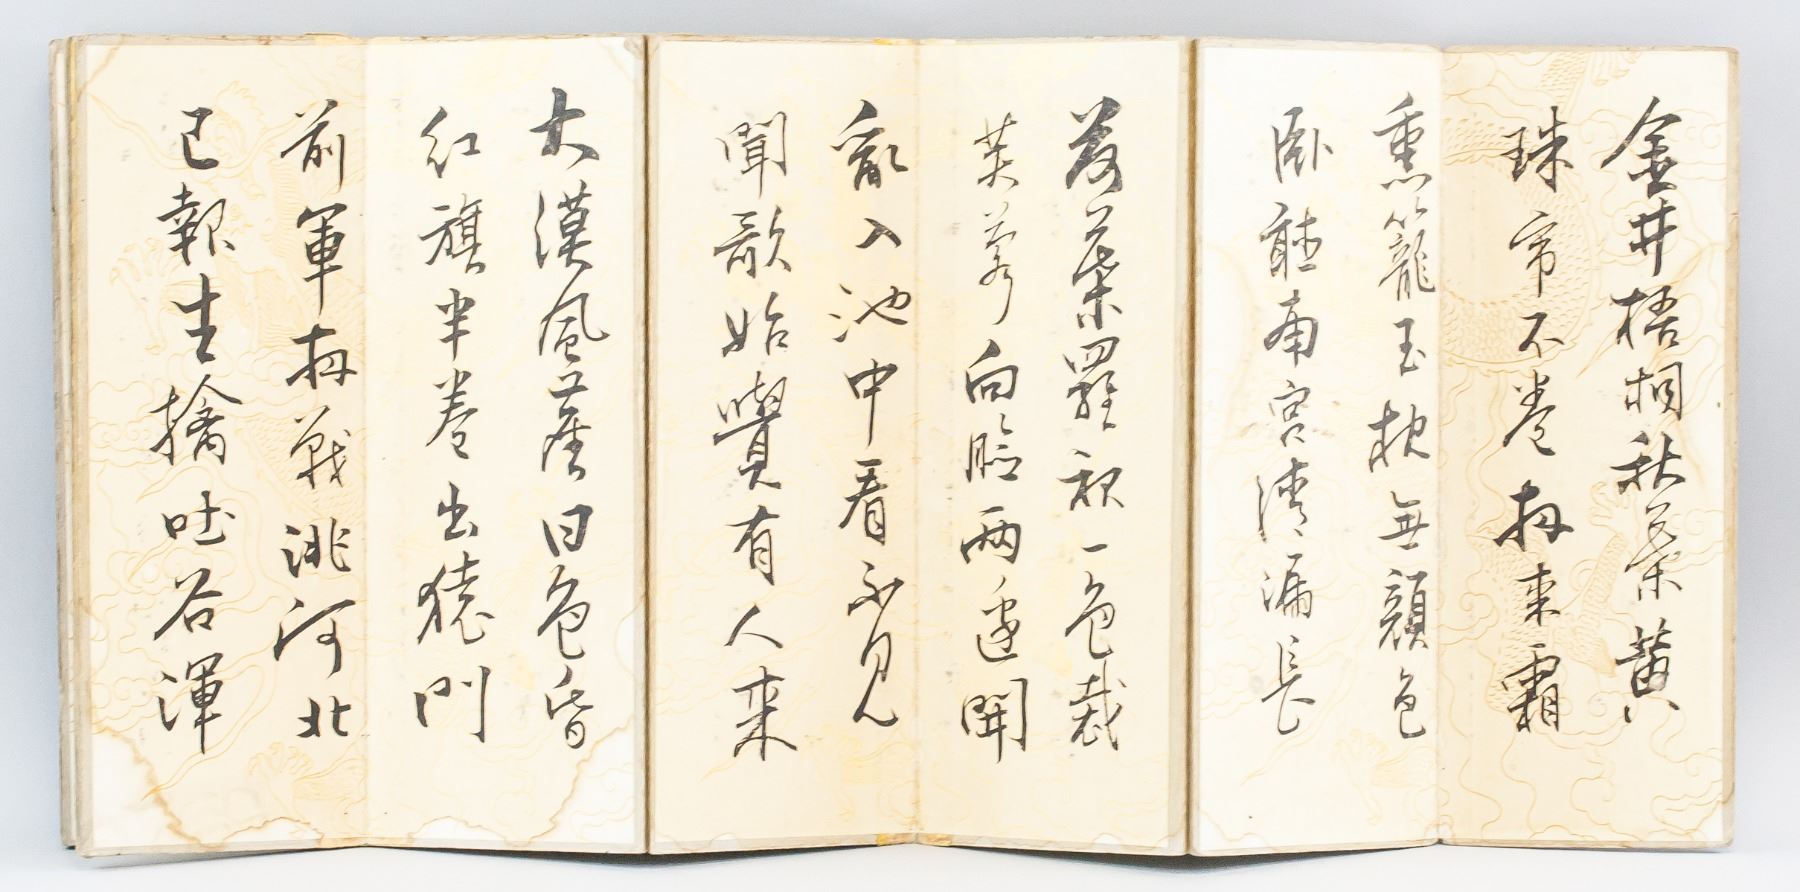 金井梧桐秋葉黄
珠帘不卷夜来霜
熏籠玉枕無顔色
臥聴南宮清漏長
荷葉羅裙一色裁
芙蓉向臉兩邊開
亂入池中看不見
聞歌始覺有人来
大漠風塵日色昏
紅旗半卷出轅門
前軍夜戰洮河北
已報生擒吐谷渾